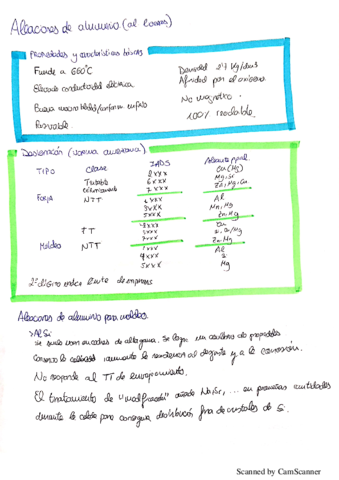 Aleaciones de aluminio (al
Propiedades y características básicas
Funde a 660ºC
Elevada conductividad eléctrica
Buena maquinabilidad/conforma en frío
Reusable.
Densidad 2'7 kg/dm3
Afinidad por el oxígeno
No magnético.
100% reciclable.
Designación (norma americana)
TIPO Clase IADS Aleante ppal.
Forja
Tratable
térmicamente
2xxx Cu (Mg)
6xxx Mg, Si
7xxx Zn, Mg, Cu
NTT
1xxx Al
3xxx Mn, Mg
5xxx
Moldeo
TT
7xxx Zn, Mg
NTT
1xxx Al
4xxx Si
5xxx Mg
2º dígito indica límite de impurezas
Aleaciones de aluminio para moldeo.
>Al Si:
Se suele con moldes de alta gama. Se logra un equilibrio de propiedades
aumenta la resistencia al desgaste y a la corrosión.
No responde al TT de envejecimiento.
El tratamiento de "modificación" añade Na, Sr, ... en pequeñas cantidades
durante la colada para conseguir distribución fina de cristales de Si.
Scanned by CamScanner